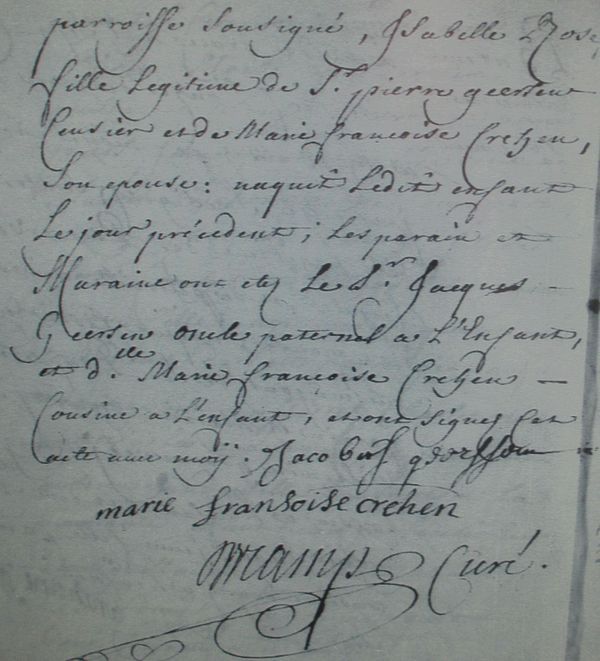 parroisse sousigné, Isabelle Rose
fille Legitime de S.r pierre geersen
Censier et de Marie francoise Crehen,
Son epouse: naquit Ledit enfant
Le jour précédent; Les parain et
Maraine ont eté Le S.r Jacques
Geersen oncle paternel a L'Enfant,
et d.lle Marie francoise Crehen
Cousine a L'enfant, et ont signes cet
acte avec moÿ. Jacobus geerssen
marie fransoise crehen
Curé.